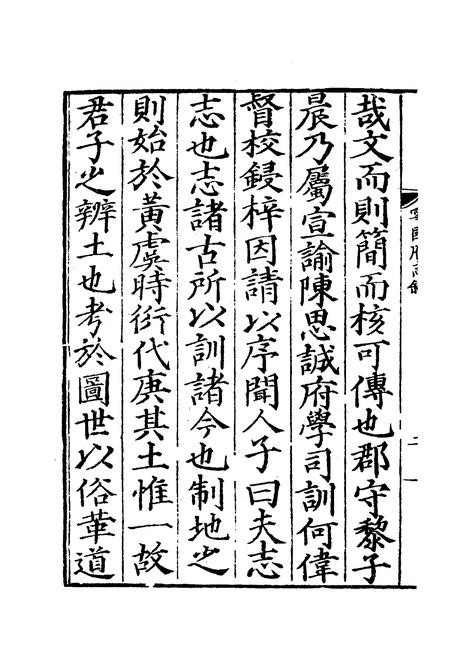 哉文而則簡而核可傳也郡守黎子
晨乃屬宣諭陳思誠府學司訓何偉
督校鋟梓因請以序聞人子曰夫志
志也志諸古所以訓諸今也制地之
則始於黃虞時衍代庚其土惟一故
君子之辨土也考於圖世以俗革道